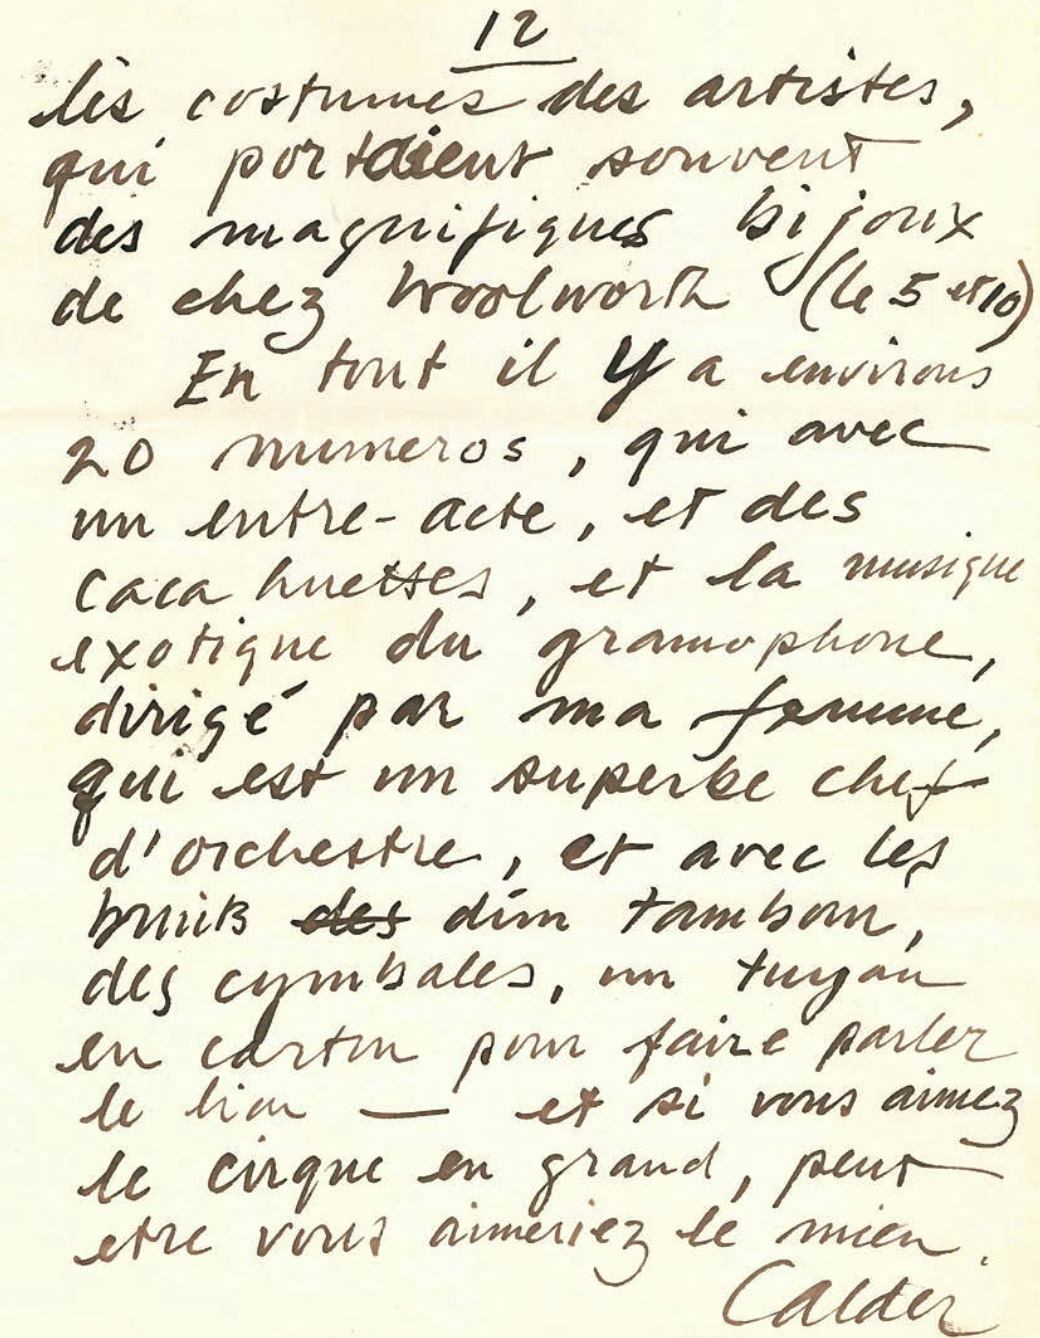 12
les costumes des artistes,
qui portaient souvent
des magnifiques bijoux
de chez Woolworth (le 5 et 10)
En tout il y a environs
20 numeros, qui avec
un entre-acte, et des
cacahuettes, et la musique
exotique du gramophone,
dirigé par ma femme,
qui est un superbe chef
d'orchestre, et avec les
bruits des d'un tambour,
des cymbales, un tuyau
en carton pour faire parler
le lion — et si vous aimez
le cirque en grand, peut
etre vous aimeriez le mien.
Calder